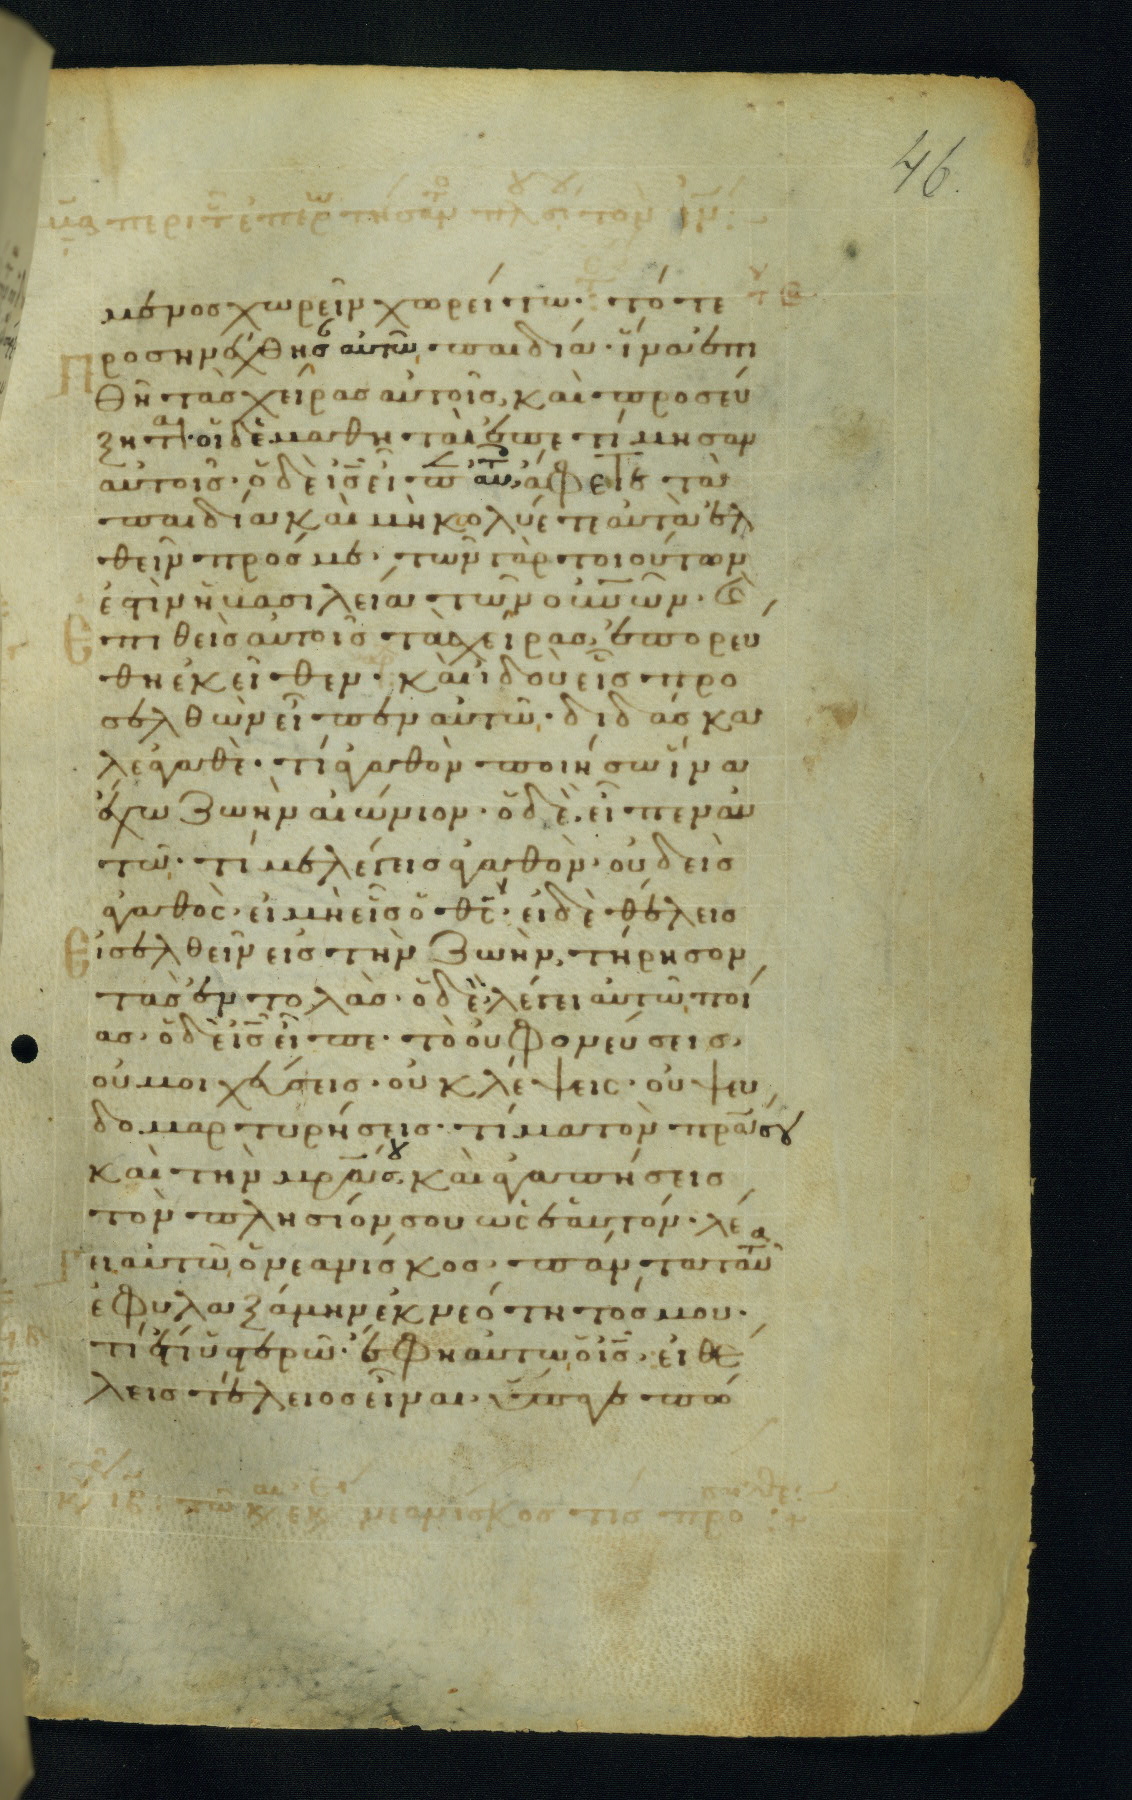 46.
μενος χωρεῖν χωρείτω· τότε
Προσηνέχθησ αὐτῶ παιδία· ἵνα ἐπι
θῆ τὰς χεῖρας αὐτοῖς, καὶ προσεύ
ξητ(αι)· οἱ δὲ μαθηταὶ ἐπετίμησαν
αὐτοῖς· ὁ δὲ ἰ̅ς̅ εἶπ αὐτ, ἄφετε τὰ
παιδία καὶ μὴ κολύετε αὐτὰ ἐλ
θεῖν πρός με· τῶν γὰρ τοιούτων
ἐστὶν ἡ βασιλεία τῶν ο̅υ̅ν̅ῶν· (καὶ)
Επιθεὶς αὐτοῖς τὰς χεῖρας, ἐπορεύ
θη ἐκεῖθεν· καὶ ἰδοὺ εἷς προ
σελθὼν εἶπεν αὐτῶ· διδάσκα
λε ἀγαθὲ· τί ἀγαθὸν ποιήσω ἵνα
ἔχω ζωὴν αἰώνιον· ὁ δὲ εἶπεν αὐ
τῶ· τί με λέγεις ἀγαθὸν· οὐδεὶς
ἀγαθὸς· εἰ μὴ εἷς ὁ θ̅ς̅· εἰ δὲ θέλεις
Εἰσελθεῖν εἰς τὴν ζωὴν, τήρησον
τὰς ἐντολάς· ὁ δὲ λέγει αὐτῶ, ποί
ας· ὁ δὲ ἰ̅ς̅ εἶπε· τὸ οὐ φονεύσεις·
οὐ μοιχεύσεις· οὐ κλέψεις· οὐ ψευ
δομαρτυρήσεις· τίμα τὸν π̅ρ̅α̅ σου
καὶ τὴν μ̅ρ̅α̅ σου, καὶ ἀγαπήσεις
τὸν πλησίον σου ὡς ἑαυτόν· λέ
Γει αὐτῶ ὁ νεανίσκος· πάντα ταῦτα
ἐφυλαξάμην ἐκ νεότητός μου·
τί ἔτι ὑστερῶ· ἔφη αὐτῶ ὁ ἰ̅ς̅· εἰ θέ
λεις τέλειος εἶναι· ὕπαγε πώ